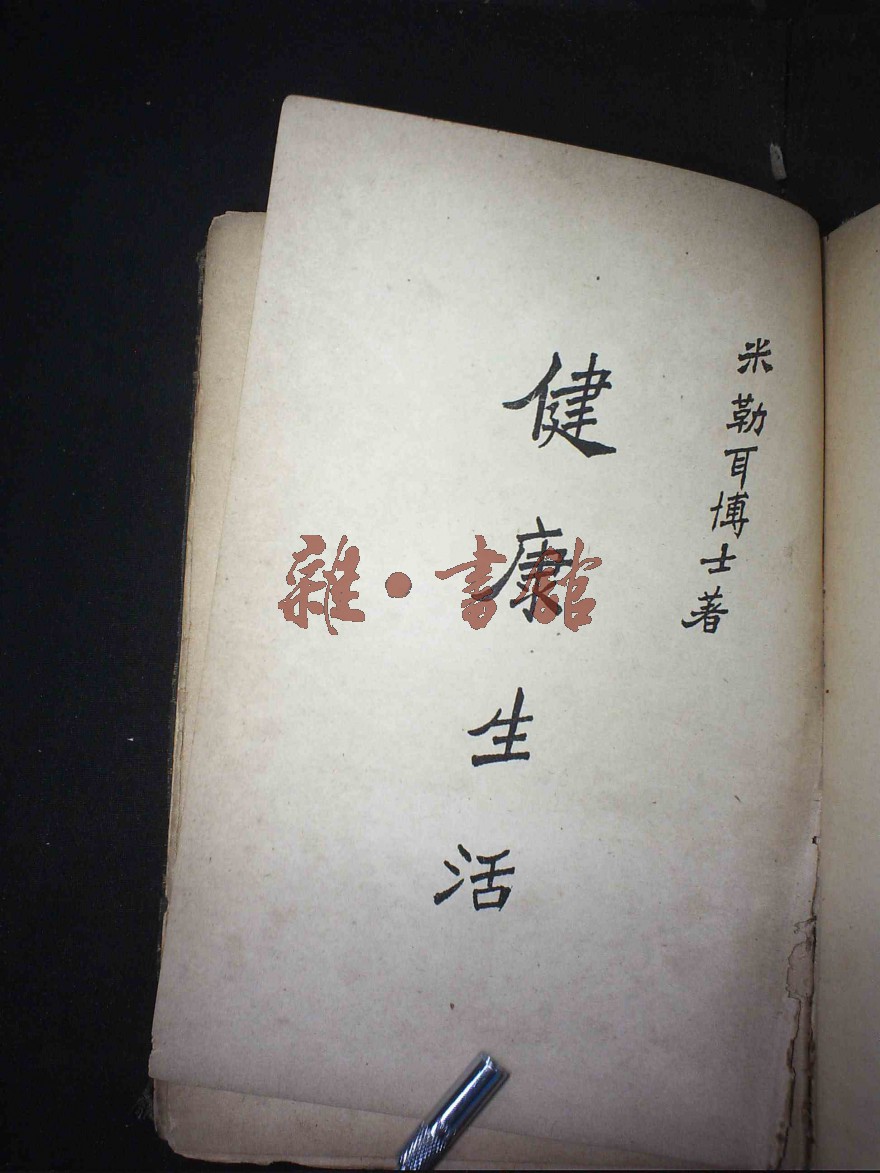 米勒耳博士著
健康生活
雜·書館